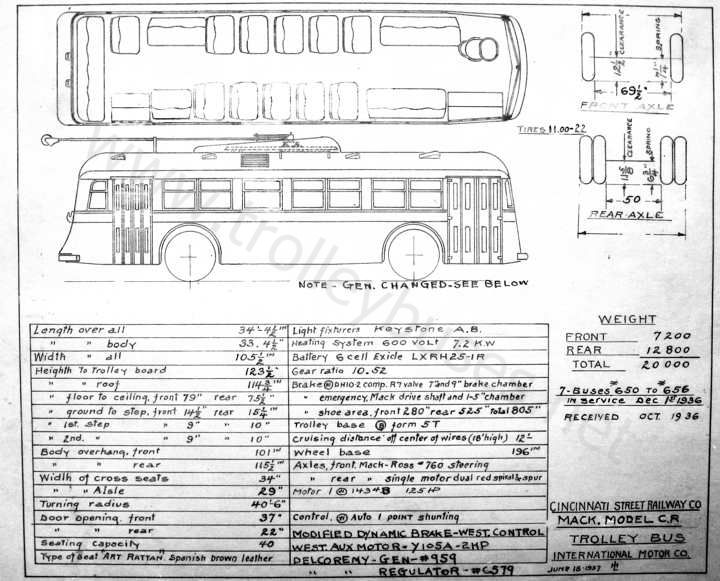 CLEARANCE
SPRING
12½"
69½"
FRONT AXLE
TIRES 11.00-22
CLEARANCE
SPRING
50
REAR AXLE
www.trolleybuses
NOTE - GEN. CHANGED-SEE BELOW
WEIGHT
FRONT 7200
REAR 12800
TOTAL 20000
7-Buses #650 To #656
IN SERVICE DEC 1ST 1936
RECEIVED OCT. 1936
Length over all 34'-4½"
" " body 33.4½"
Width " all 105½"
Heighth To trolley board 123½"
" " roof 114¾"
" floor to ceiling, front 79" rear 75½"
" ground to step, front 14½" rear 15¾"
" 1st. step " 9" " 10"
" 2nd. " " 9" " 10"
Body overhang, front 101"
" " rear 115½"
Width of cross seats 34"
" " Aisle 29"
Turning radius 40'-6"
Door opening, front 37"
" " rear 22"
Seating capacity 40
Type of Seat "ART RATTAN" Spanish brown leather
Light fixturers Keystone A.B.
Heating System 600 VOLT 7.2 KW
Battery 6 cell Exide LXRH25-1R
Gear ratio 10.52
Brake W DH10-2 comp. R7 valve 7" and 9" brake chamber
" emergency, Mack drive shaft and 1-5" chamber
" shoe area, front 280" rear 525" Total 805"
Trolley base form 5T
Cruising distance off center of wires (18' high) 12'
Wheel base 196"
Axles, front, Mack-Ross #760 steering
" rear " single motor dual red spiral & spur
Motor 1 W 1434B 125 HP
Control, W Auto 1 POINT shunting
MODIFIED DYNAMIC BRAKE-WEST. CONTROL
WEST. AUX MOTOR-Y105A-2HP
DELCOREMY-GEN-#959
" " REGULATOR-#C579
CINCINNATI STREET RAILWAY CO
MACK, MODEL C.R
TROLLEY BUS
INTERNATIONAL MOTOR CO.
JUNE 15-1937